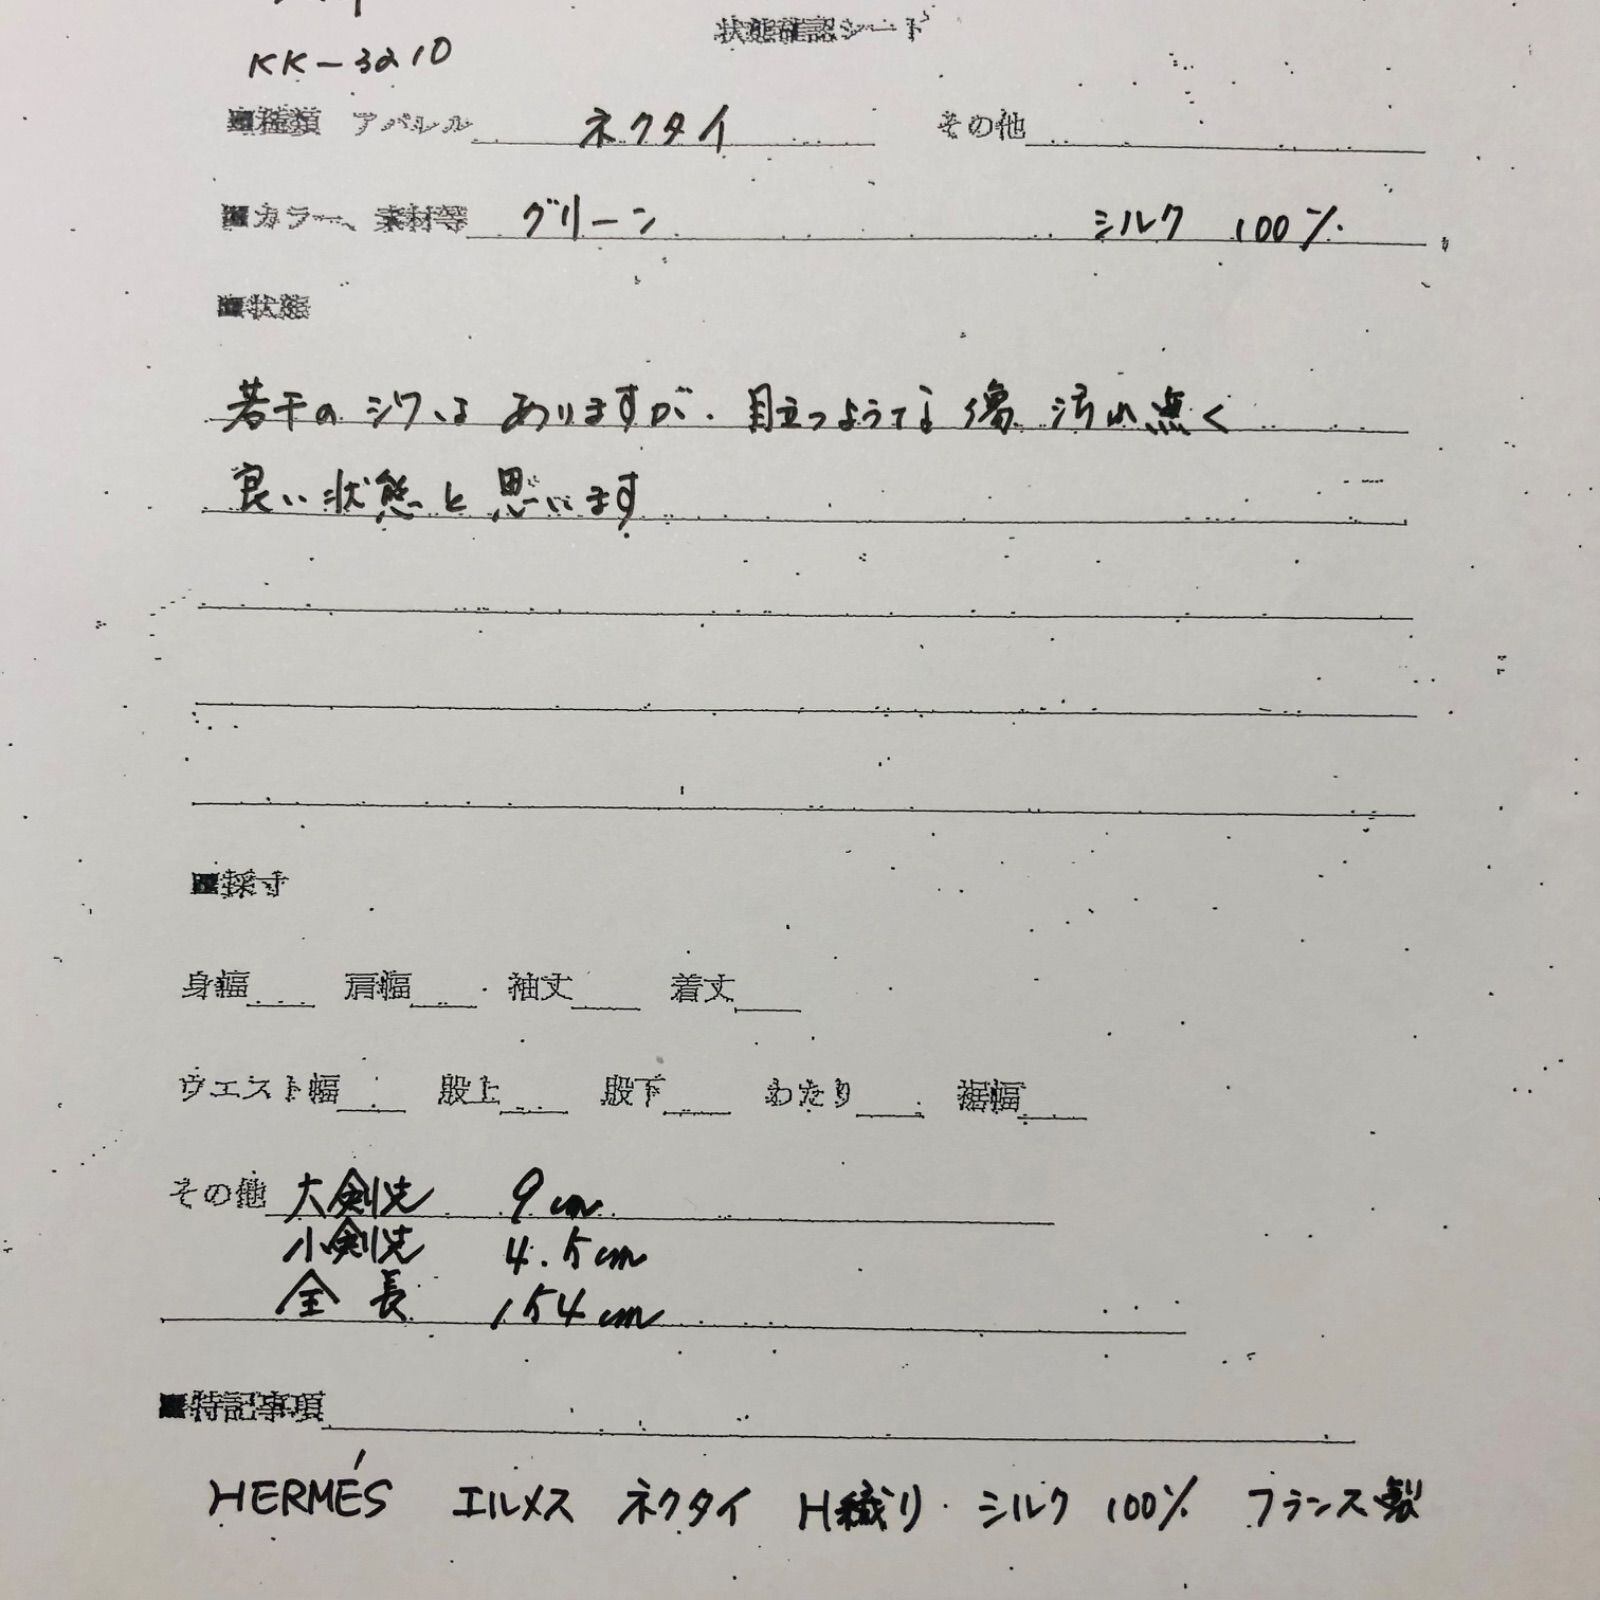 状態確認シート
KK-3210
■種類 アパレル ネクタイ その他
■カラー、素材等 グリーン シルク 100%
■状態
若干のシワはありますが、目立つような傷 汚れ無く
良い状態と思います
■採寸
身幅 肩幅 袖丈 着丈
ウエスト幅 股上 股下 わたり 裾幅
その他 大剣先 9cm
小剣先 4.5cm
全長 154cm
■特記事項
HERMÉS エルメス ネクタイ H織り シルク 100% フランス製